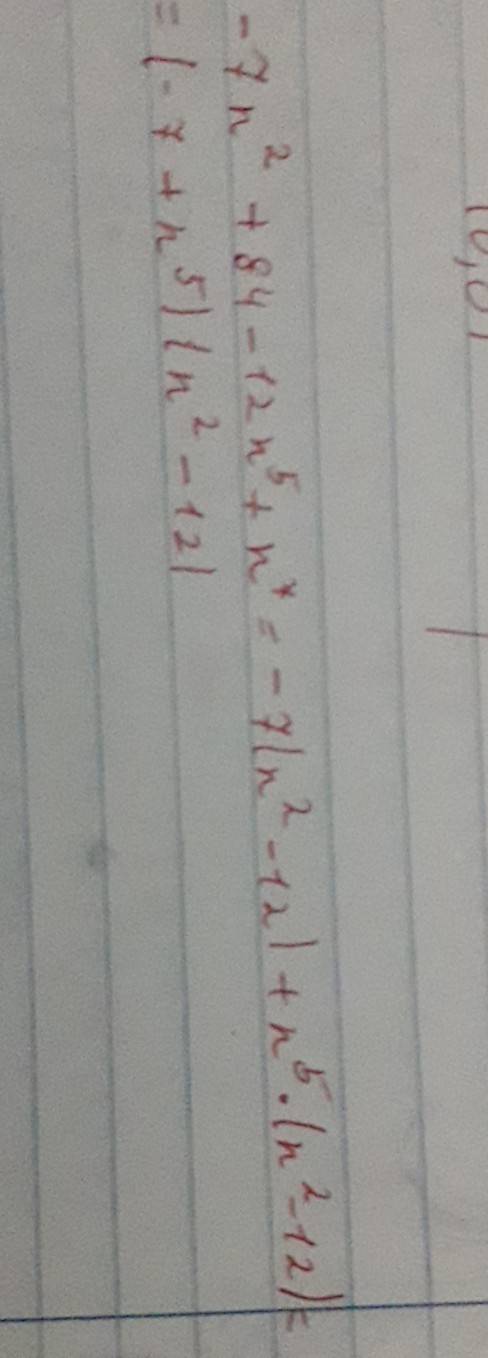 -7n² + 84 - 12n⁵ + n⁷ = -7(n² - 12) + n⁵ · (n² - 12) =
= (-7 + n⁵)(n² - 12)